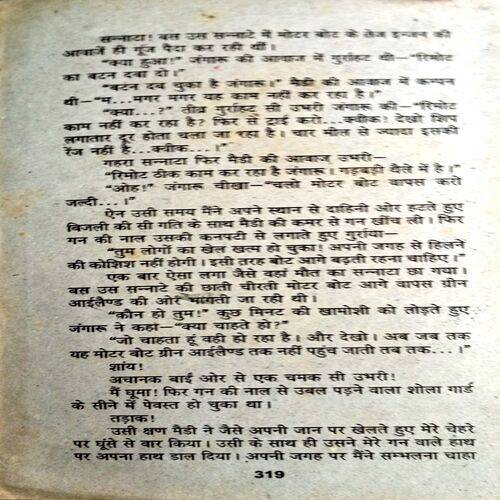 सन्नाटा! बस उस सन्नाटे में मोटर बोट के तेज इन्जन की
आवाजें ही गूंज पैदा कर रही थीं।
"क्या हुआ!" जंगारू की आवाज में गुर्राहट थी—"रिमोट
का बटन दबा दो।"
"बटन दब चुका है जंगारू।" मैडी की आवाज में कम्पन
थी—"म...मगर मगर यह काम नहीं कर रहा है।"
"क्या...?" तीव्र गुर्राहट सी उभरी जंगारू की—"रिमोट
काम नहीं कर रहा है? फिर से ट्राई करो...क्वीक! देखो शिप
लगातार दूर होता चला जा रहा है। चार मील से ज्यादा इसकी
रेंज नहीं है...क्वीक...।"
गहरा सन्नाटा फिर मैडी की आवाज उभरी—
"रिमोट ठीक काम कर रहा है जंगारू। गड़बड़ी थैले में है।"
"ओह!" जंगारू चीखा—"चलो मोटर बोट वापस करो
जल्दी...।"
ऐन उसी समय मैंने अपने स्थान से दाहिनी ओर हटते हुए
बिजली की सी गति के साथ मैडी की कमर से गन खींच ली। फिर
गन की नाल उसकी कनपटी से लगाते हुए गुर्राया—
"तुम लोगों का खेल खत्म हो चुका! अपनी जगह से हिलने
की कोशिश नहीं होगी। इसी तरह बोट आगे बढ़ती रहना चाहिए।"
एक बार ऐसा लगा जैसे वहां मौत का सन्नाटा छा गया।
बस उस सन्नाटे की छाती चीरती मोटर बोट आगे वापस ग्रीन
आईलैण्ड की ओर भागती जा रही थी।
"कौन हो तुम!" कुछ मिनट की खामोशी को तोड़ते हुए
जंगारू ने कहा—"क्या चाहते हो?"
"जो चाहता हूं वही हो रहा है। और देखो। अब जब तक
यह मोटर बोट ग्रीन आईलैण्ड तक नहीं पहुंच जाती तब तक...।"
शांय!
अचानक बाईं ओर से एक चमक सी उभरी!
मैं घूमा! फिर गन की नाल से उबल पड़ने वाला शोला गार्ड
के सीने में पेवस्त हो चुका था।
तड़ाक!
उसी क्षण मैडी ने जैसे अपनी जान पर खेलते हुए मेरे चेहरे
पर घूंसे से वार किया। उसी के साथ ही उसने मेरे गन वाले हाथ
पर अपना हाथ डाल दिया। अपनी जगह पर मैंने सम्भलना चाहा
319